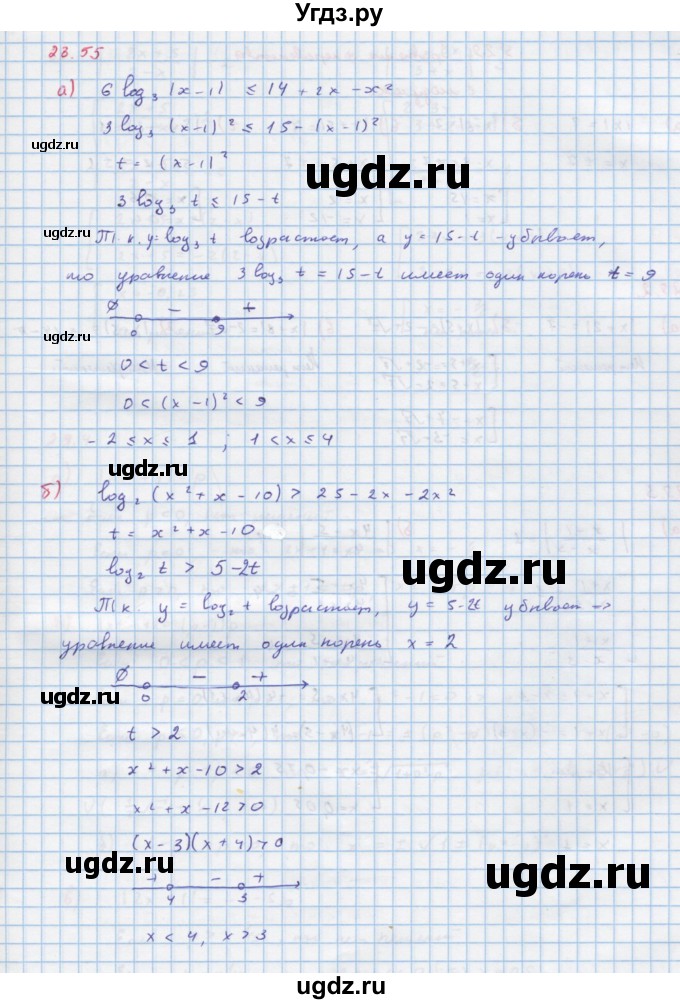 Угдз.ру
23.55
а) 6 log₃ |x-1| ≤ 14 + 2x - x²
3 log₃ (x-1)² ≤ 15 - (x-1)²
ugdz.ru
t = (x-1)²
ugdz.ru
3 log₃ t ≤ 15 - t
ugdz.ru
Т.к. y = log₃ t возрастает, а y = 15 - t - убывает,
то уравнение 3 log₃ t = 15 - t имеет один корень t = 9
∅ - +
0 9
ugdz.ru
0 < t < 9
0 < (x-1)² < 9
-2 ≤ x ≤ 1 ; 1 < x ≤ 4
ugdz.ru
б) log₂ (x² + x - 10) > 25 - 2x - 2x²
t = x² + x - 10
ugdz.ru
log₂ t > 5 - 2t
ugdz.ru
Т.к. y = log₂ t возрастает, y = 5 - 2t убывает ->
уравнение имеет один корень x = 2
∅ - +
ugdz.ru
0 2
t > 2
x² + x - 10 > 2
x² + x - 12 > 0
(x-3)(x+4) > 0
ugdz.ru
ugdz.ru
+ - +
4 3
x < 4, x > 3
ugdz.ru